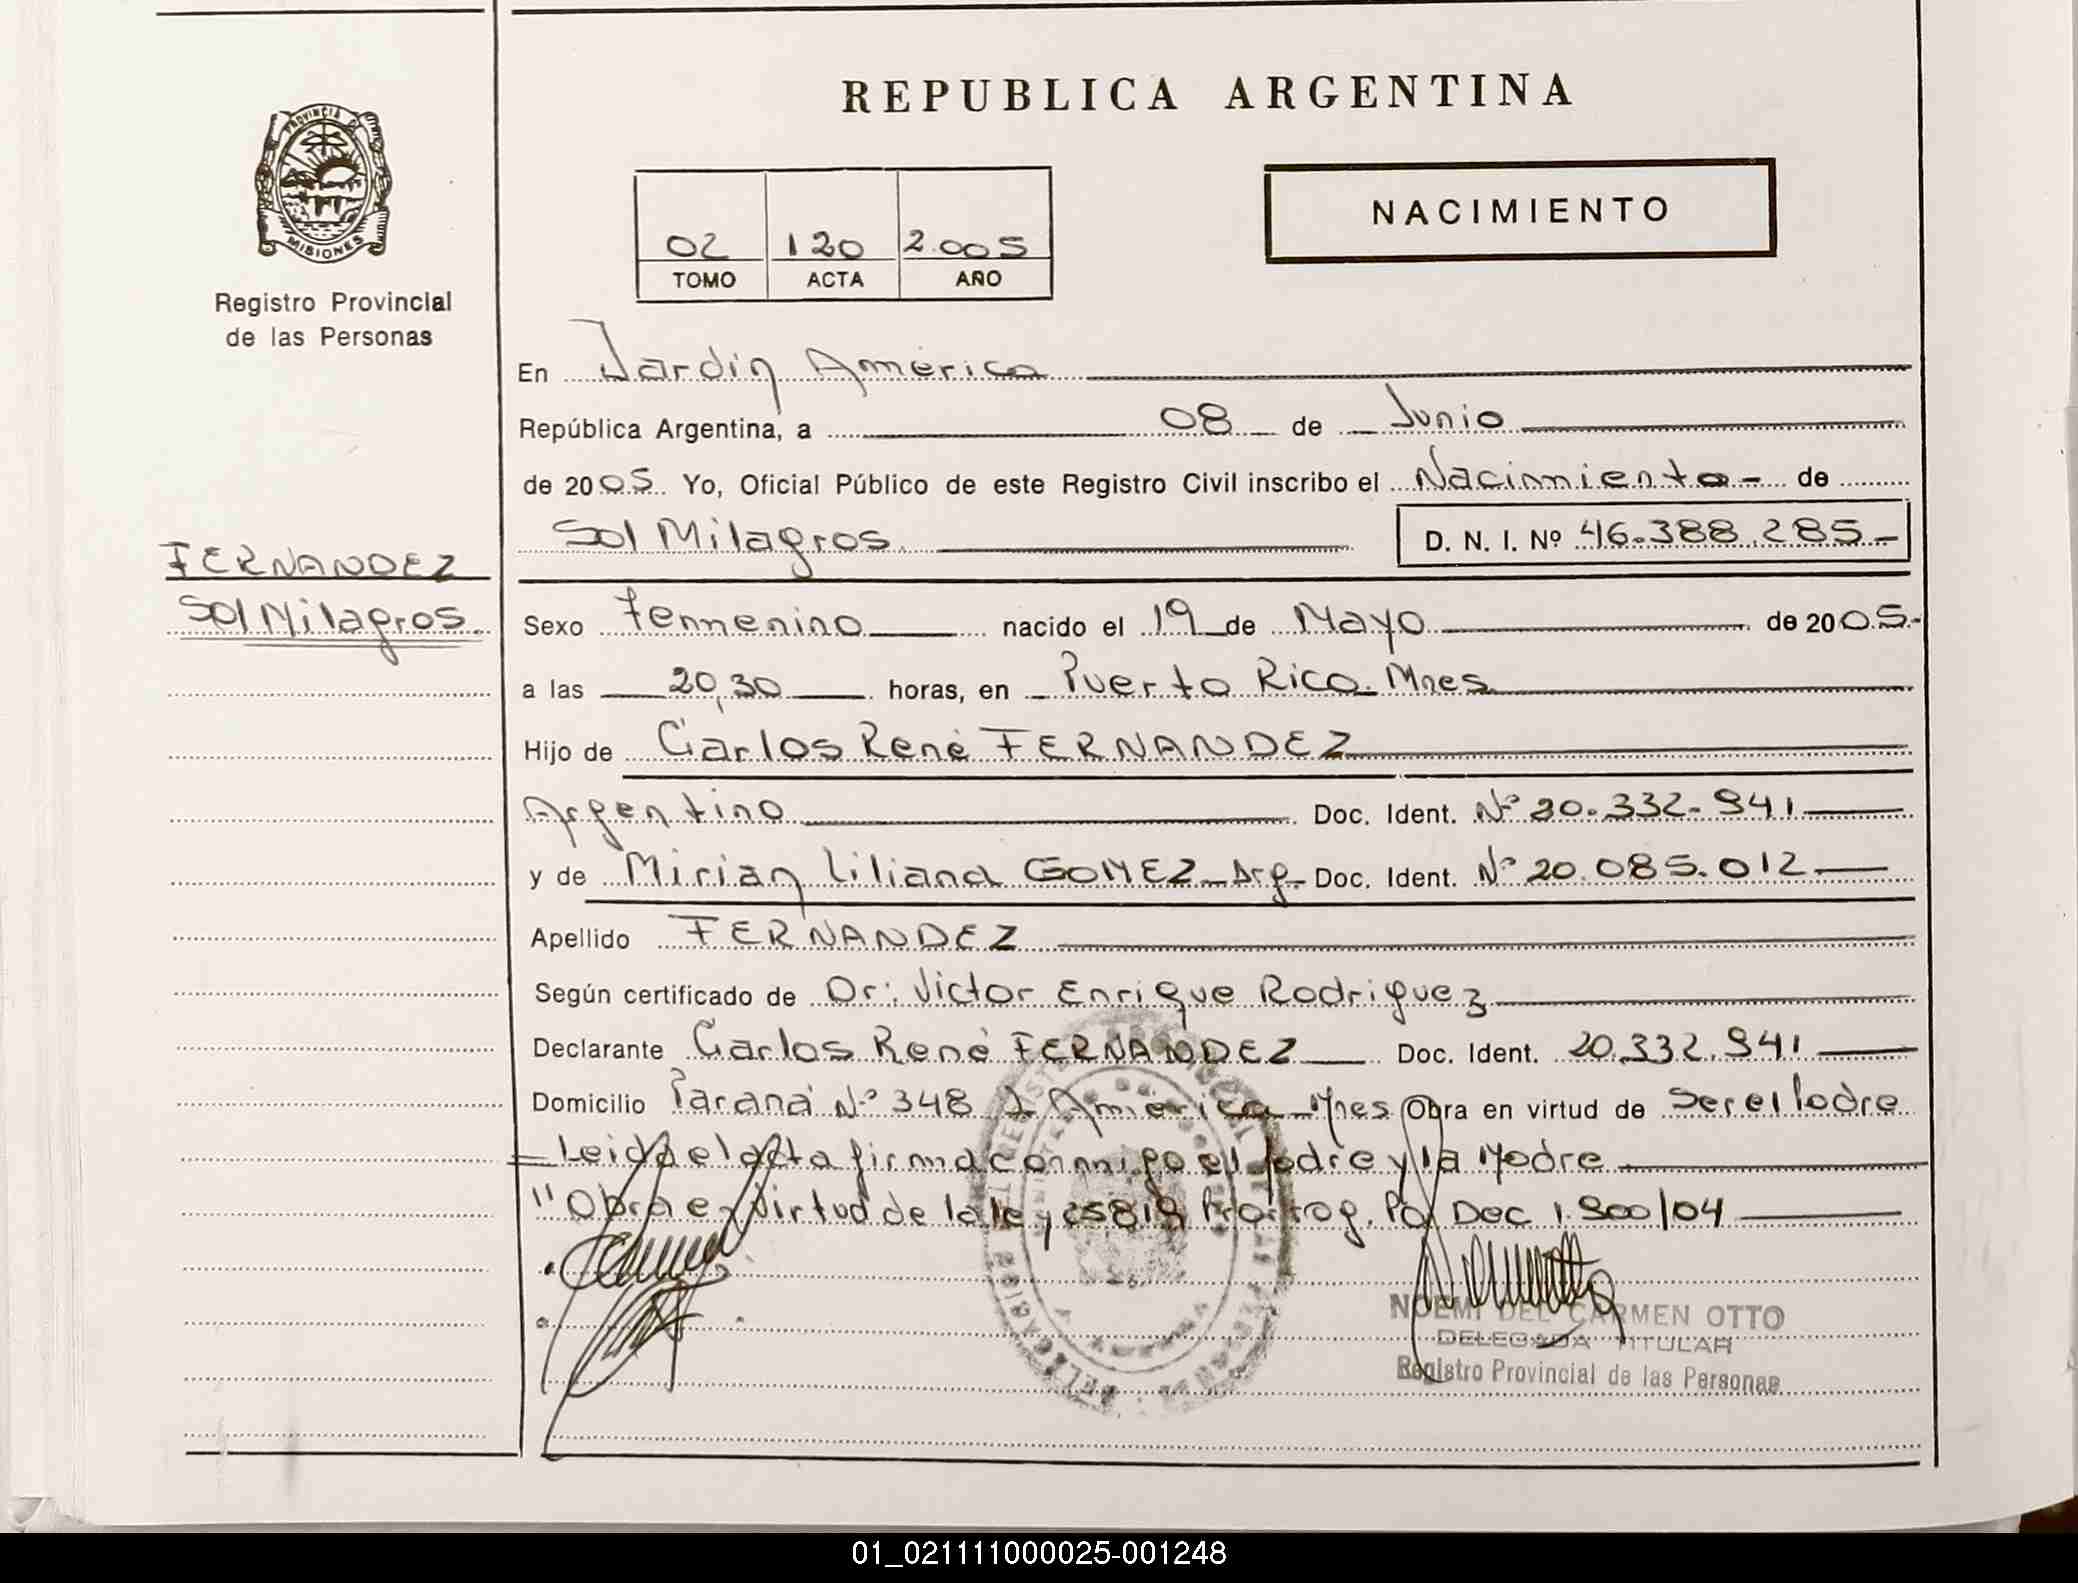 REPUBLICA ARGENTINA
PROVINCIA DE
MISIONES
Registro Provincial
de las Personas
NACIMIENTO
02 120 2.005
TOMO ACTA AÑO
En Jardín América
República Argentina, a 08 de Junio
de 2005 Yo, Oficial Público de este Registro Civil inscribo el Nacimiento - de
Sol Milagros D. N. I. Nº 46.388.285-
FERNANDEZ
Sol Milagros.
Sexo Femenino nacido el 19 de Mayo de 2005.-
a las 20,30 horas, en Puerto Rico. Mnes
Hijo de Carlos René FERNANDEZ
Argentino Doc. Ident. Nº 20.332.941
y de Mirian Liliana GOMEZ - Arg - Doc. Ident. Nº 20.085.012
Apellido FERNANDEZ
Según certificado de Dr: Victor Enrique Rodriguez
Declarante Carlos René FERNANDEZ Doc. Ident. 20.332.941
Domicilio Paraná Nº 348 J América Mnes Obra en virtud de Ser el Padre
- Leida el acta firma conmigo el Padre y la Madre
"Obra en virtud de la ley 25819 Prorrog. Po Dec 1.900/04
NOEMI DEL CARMEN OTTO
DELEGADA TITULAR
Registro Provincial de las Personas
01_021111000025-001248